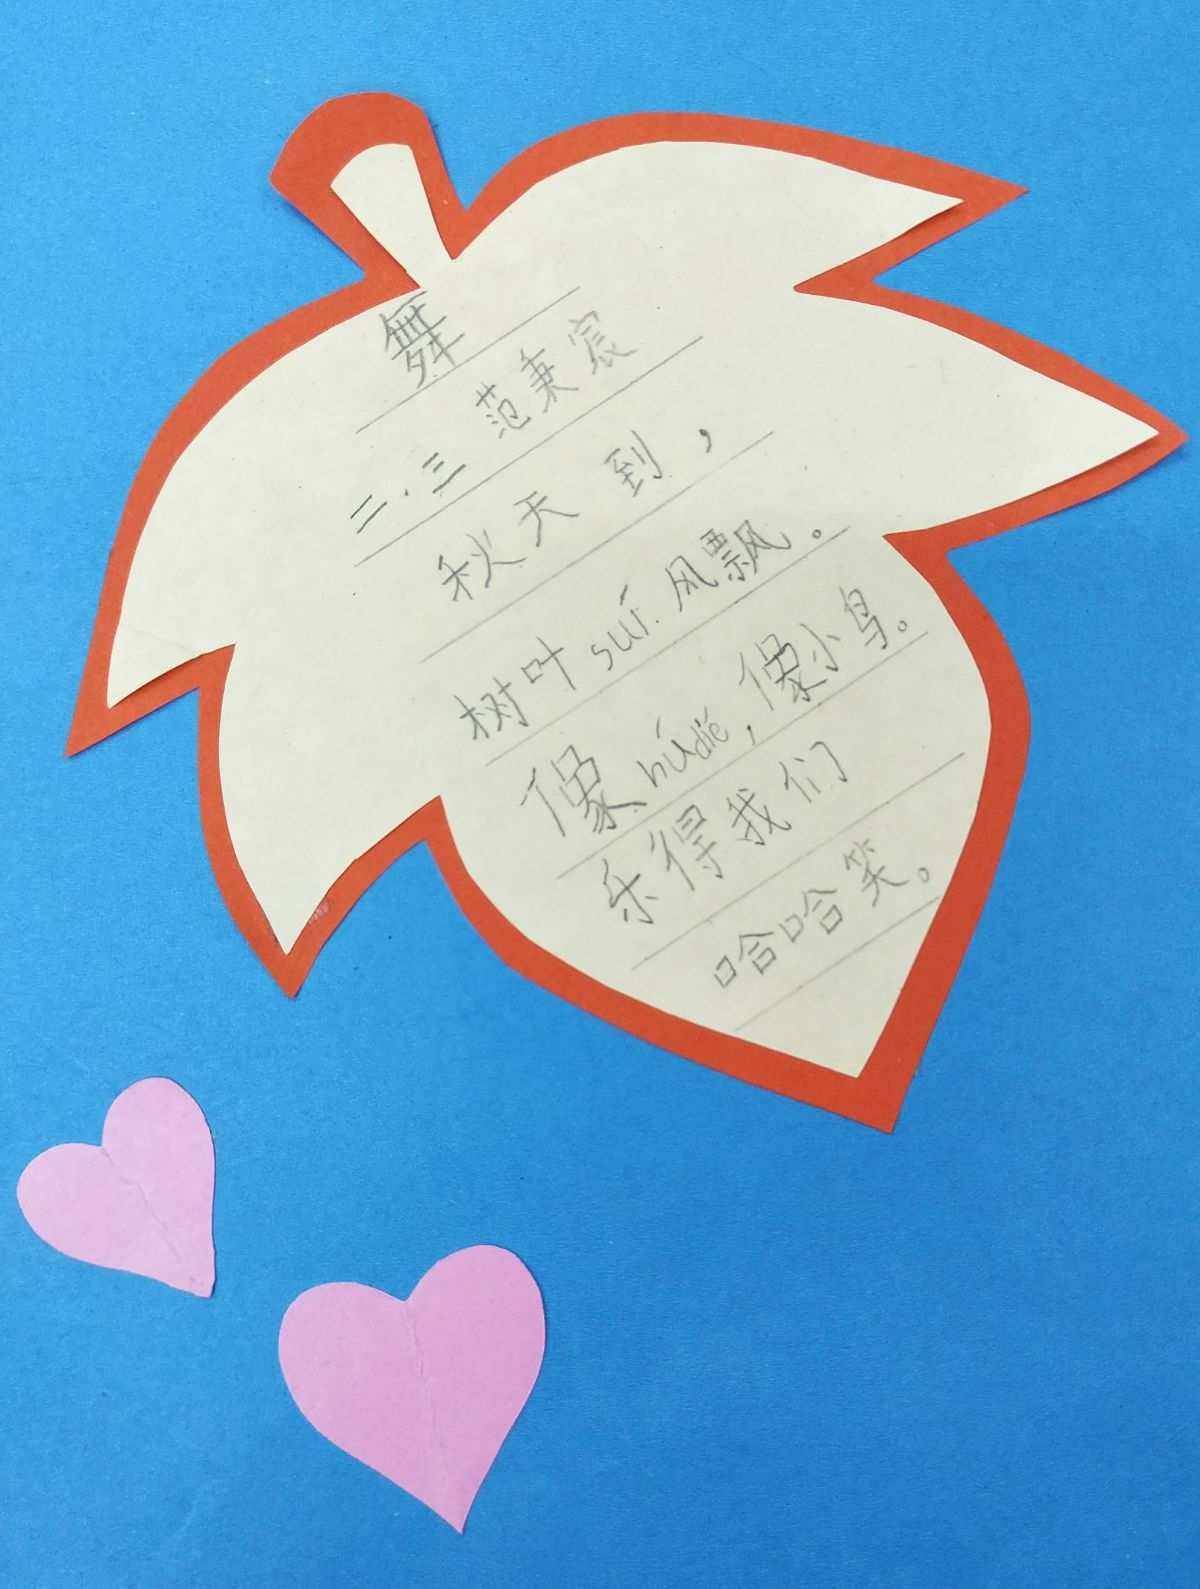 舞
二.三 范秉宸
秋天到，
树叶suí风飘。
像húdié，像小鸟。
乐得我们
哈哈笑。